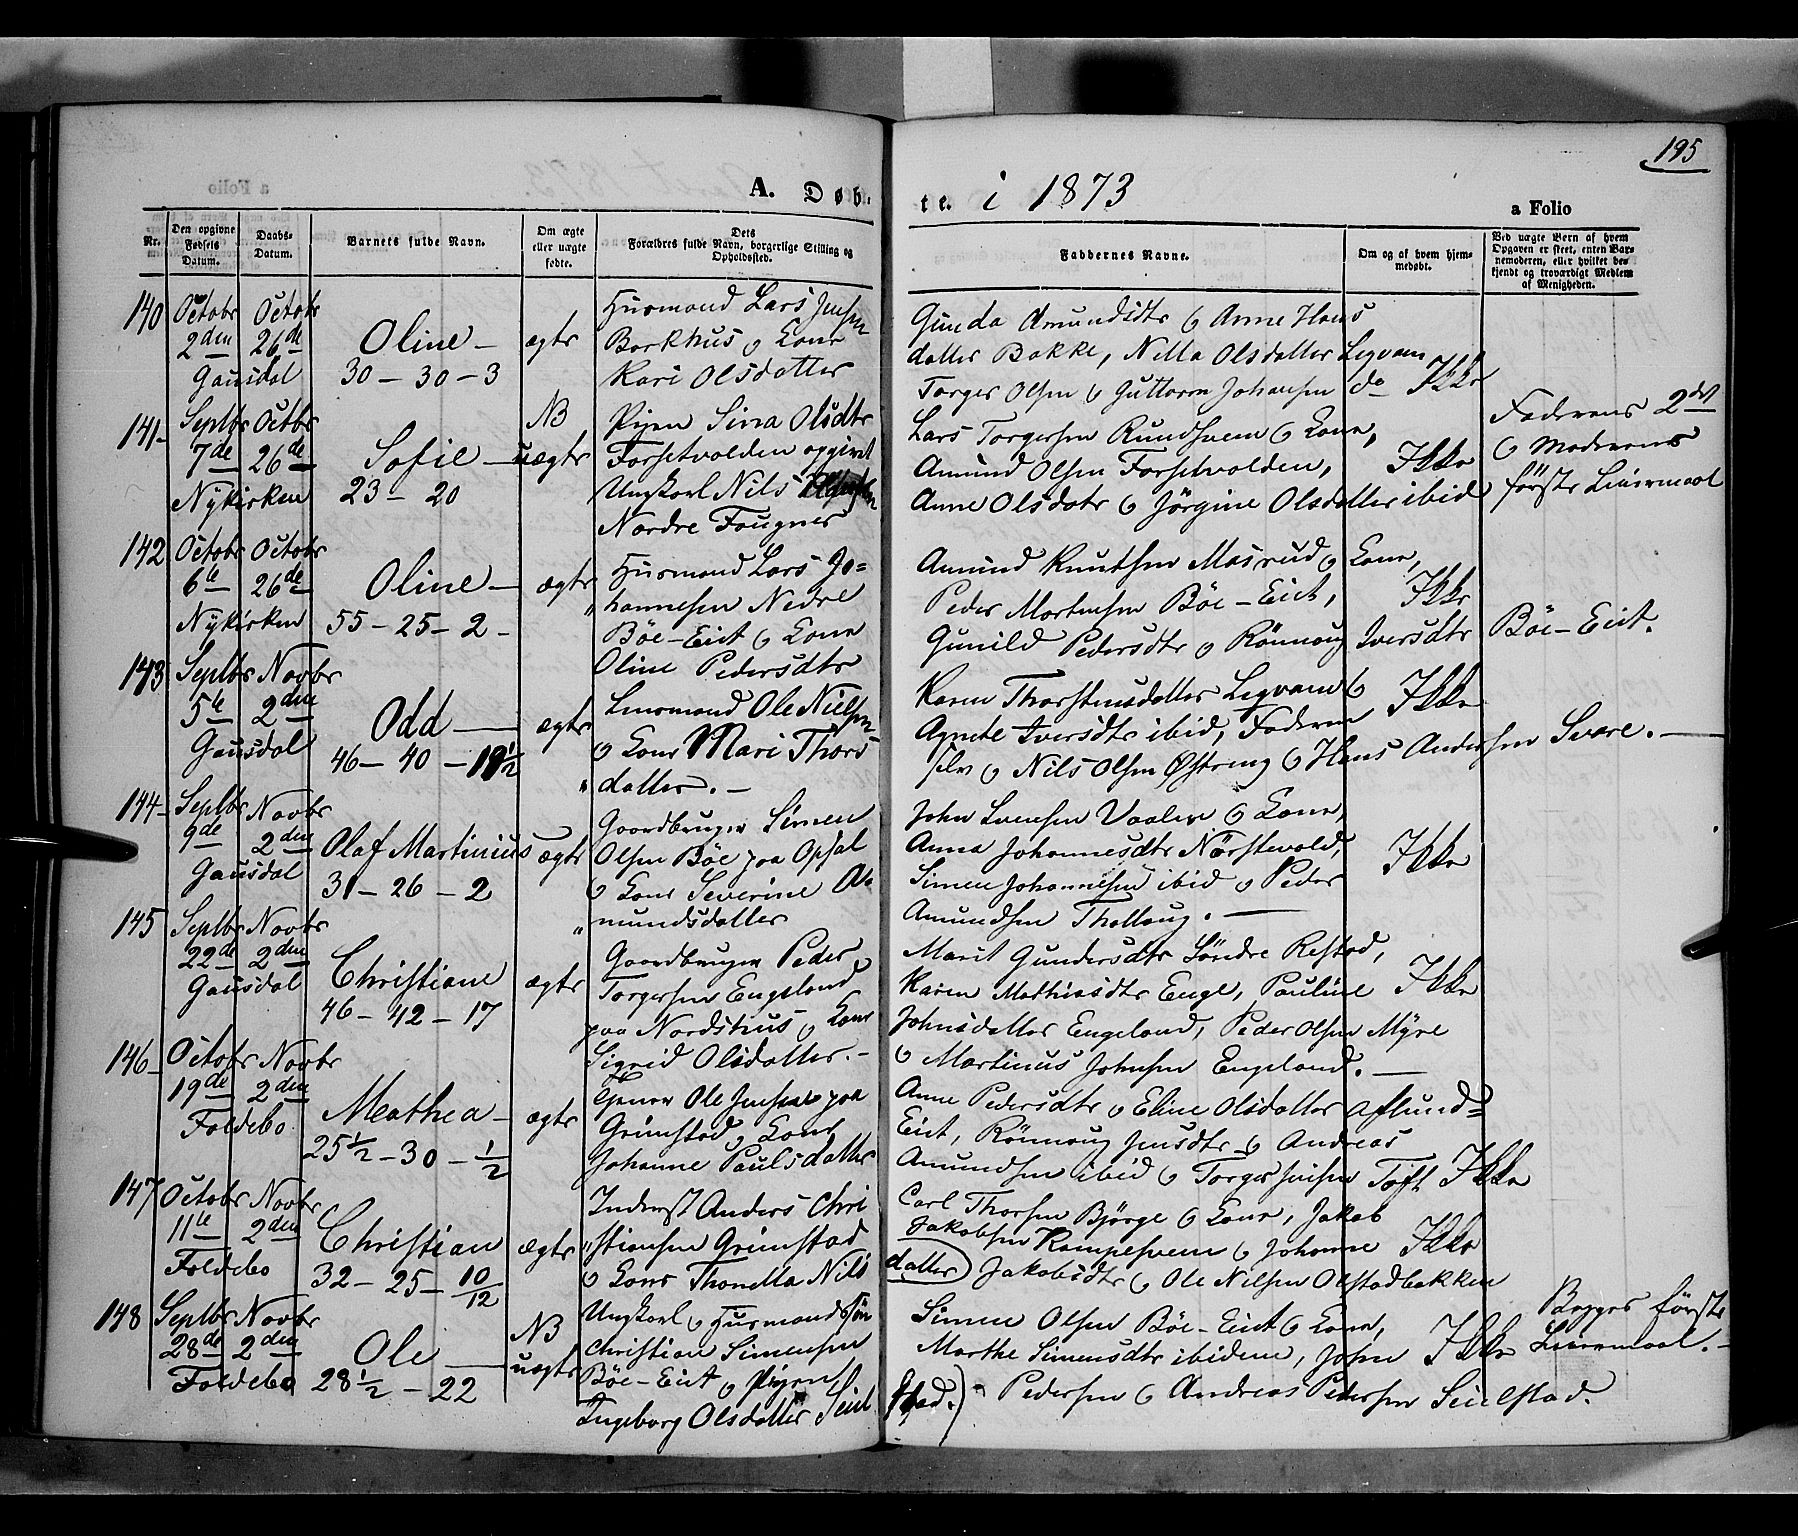 195
A. Døb-
te. i 1873
a Folio
a Folio
Nr.
Den opgivne
Fødsels
Datum.
Daabs-
Datum.
Barnets fulde Navn.
Om ægte
eller uægte
fødte.
Dets
Forældres fulde Navn, borgerlige Stilling og
Opholdssted.
Faddernes Navne.
Om og af hvem hjem-
medøbt.
Ved uægte Børn af hvem
Opgaven er skeet, enten Bar-
nemoderen, eller hvilket be-
kjendt og troværdigt Medlem
af Menigheden.
140
Octobr
2den
Octobr
26de
Gausdal
Oline
30 - 30 - 3
ægte
Huusmand Lars Jensen
Borkhus og Kone
Kari Olsdatter
Gunda Amundsdtr og Anne Hans
datter Bakke, Nilla Olsdatter Legvam
Torger Olsen og Guttorm Johansen do
Ikke
141
Septbr
7de
Octbr
26de
Nykirken
Sofie
23 - 20
NB
uægte
Pigen Sina Olsdtr
Forsetvolden opgivet
Ungkarl Nils
Nordre Fougner
Lars Torgersen Rundsveen og Kone,
Amund Olsen Forsetvolden,
Anne Olsdatr og Jörgine Olsdatter ibid
Ikke
Faderens 2det
og Moderens
første Leiermaal
142
Octobr
6te
Octobr
26de
Nykirken
Oline
55 - 25 - 2
ægte
Huusmand Lars Jo-
hannesen Nedre
Böe-Eiet og Kone
Oline Pedersdtr
Amund Knutsen Masrud og Kone,
Peder Mortensen Böe-Eiet,
Gunild Pedersdtr og Rönnoug Iversdtr Böe-Eiet.
Ikke
143
Septbr
5te
Novbr
2den
Gausdal
Odd
46 - 40 - 19½
ægte
Leiermand Ole Nielsen
og Kone Mari Thors
datter.
Karen Thorstensdatter Legvam og
Agnete Iversdtr ibid, Faderen
selv og Nils Olsen Østreng og Hans Andersen Svare.
Ikke
144
Septbr
9de
Novbr
2den
Gausdal
Olaf Martinius
31 - 26 - 2
ægte
Gaardbruger Simen
Olsen Böe paa Opsal
og Kone Severine A-
mundsdatter
John Svensen Vaalen og Kone,
Anna Johannesdtr Nörstevold,
Simen Johannesen ibid og Peder
Amundsen Thollaug.
Ikke
145
Septbr
22de
Novbr
2den
Gausdal
Christiane
46 - 42 - 17
ægte
Gaardbruger Peder
Torgersen Engeland
paa Nordshus og Kone
Sigrid Olsdatter.
Marit Gundersdtr Söndre Restad,
Karen Mathiasdtr Enge, Pauline
Johnsdatter Engeland, Peder Olsen Myre
og Martinus Johnsen Engeland.
Ikke
146
Octobr
19de
Novbr
2den
Foldebo
Mathea
25½ - 30 - ½
ægte
Gjever Ole Jensen paa
Grimstad og Kone
Johanne Paulsdatter
Anne Pedersdtr og Eline Olsdatter Aflund-
Eiet, Rönnoug Jensdtr og Andreas
Amundsen ibid og Torger Jensen Toft
Ikke
147
Octobr
11te
Novbr
2den
Foldebo
Christian
32 - 25 - 10/12
ægte
Inderst Anders Chri
stiansen Grimstad
og Kone Thonetta Nils
datter
Carl Thorsen Bjørge og Kone, Jakob
Jakobsen Rompesveen og Johanne
Jakobsdtr og Ole Nilsen Olstadbakken
Ikke
148
Septbr
28de
Novbr
2den
Foldebo
Ole
28½ - 22
NB
uægte
Ungkarl og Huusmandssön
Christian Simensen
Böe-Eiet og Pigen
Ingeborg Olsdatter Seiel
stad.
Simen Olsen Böe-Eiet og Kone,
Marthe Simensdtr ibidem, John
Pedersen og Andreas Pedersen Seielstad.
Ikke
Begges første
Leiermaal.